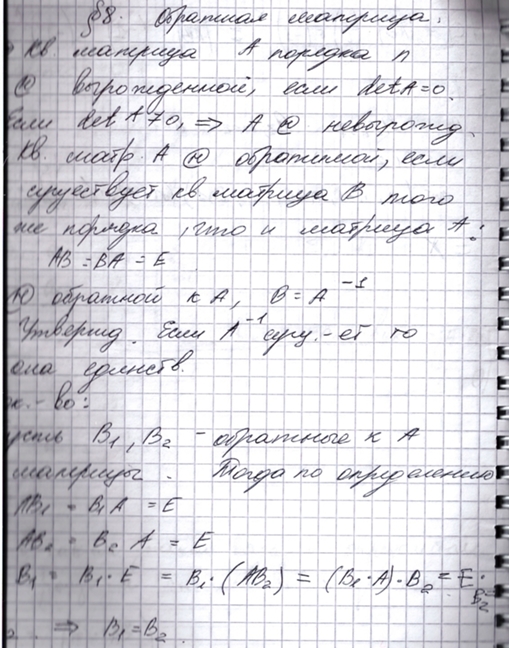 §8. Обратная матрица.
Кв. матрица A порядка n
Ⓝ вырожденной, если det A = 0.
Если det A ≠ 0, ⇒ A Ⓝ невырожд.
Кв. матр. A Ⓝ обратимой, если
существует кв. матрица B того
же порядка, что и матрица A:
AB = BA = E
Ⓝ обратной к A, B = A⁻¹
Утвержд. Если A⁻¹ сущ.-ет то
она единств.
к.-во:
усть B₁, B₂ - обратные к A
матрицы. Тогда по определению
AB₁ = B₁A = E
AB₂ = B₂ A = E
B₁ = B₁·E = B₁·(AB₂) = (B₁·A)·B₂ = E·B₂
⇒ B₁ = B₂.